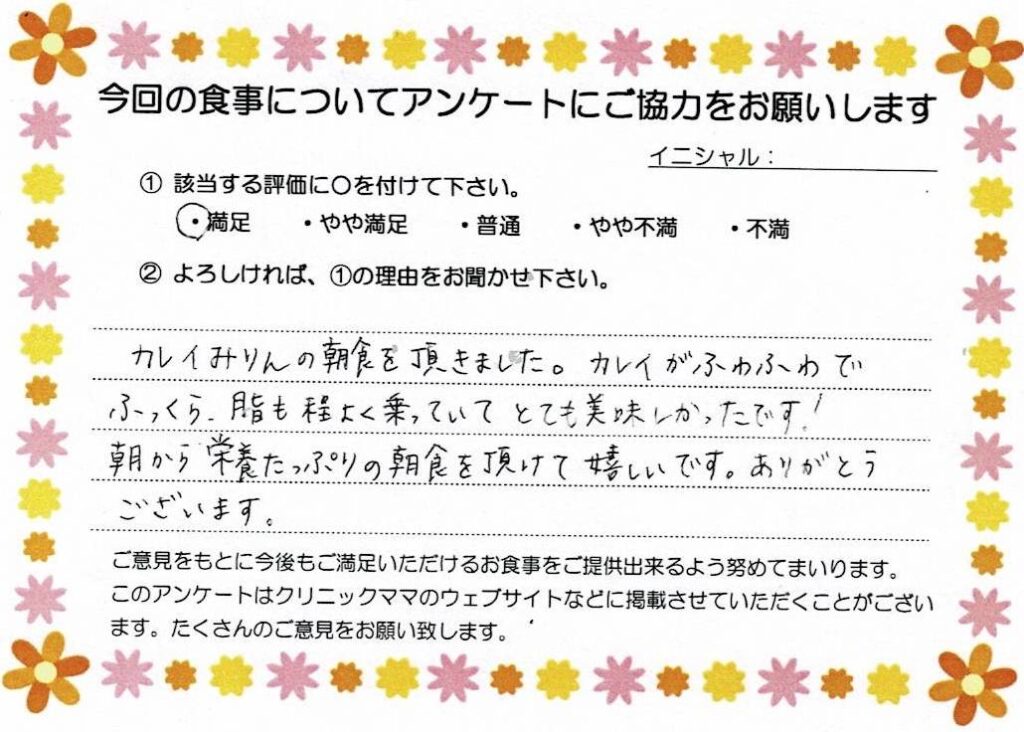 今回の食事についてアンケートにご協力をお願いします
イニシャル：
① 該当する評価に○を付けて下さい。
・満足 ・やや満足 ・普通 ・やや不満 ・不満
② よろしければ、①の理由をお聞かせ下さい。
カレイみりんの朝食を頂きました。カレイがふわふわで
ふっくら、脂も程よく乗っていてとても美味しかったです!
朝から栄養たっぷりの朝食を頂けて嬉しいです。ありがとう
ございます。
ご意見をもとに今後もご満足いただけるお食事をご提供出来るよう努めてまいります。
このアンケートはクリニックママのウェブサイトなどに掲載させていただくことがござい
ます。たくさんのご意見をお願い致します。